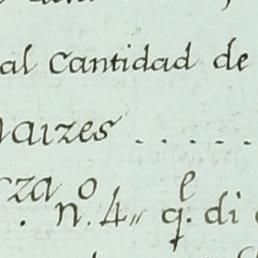 al Cantidad de
aizes . . . . .
za
. n.º 4,, q.e di